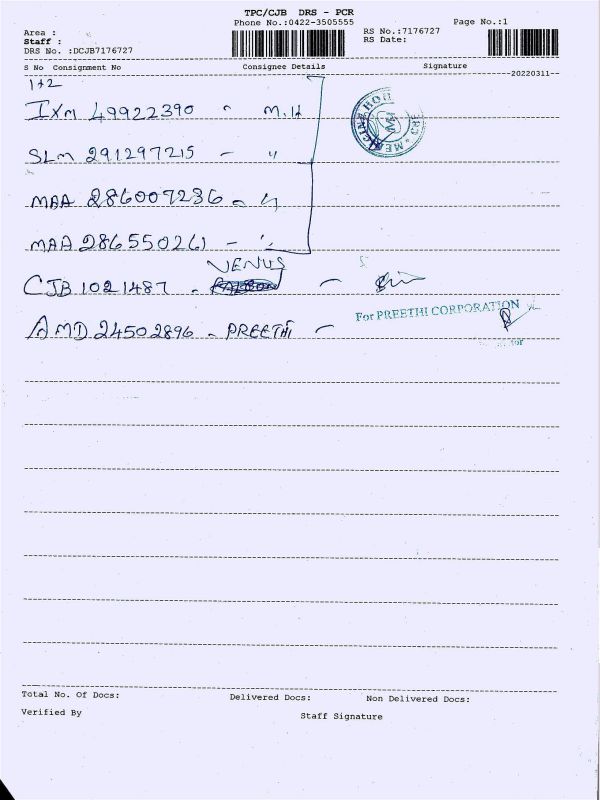 TPC/CJB DRS - PCR
Phone No.:0422-3505555 Page No.:1
Area : RS No.:7176727
Staff : RS Date:
DRS No. :DCJB7176727
S No Consignment No Consignee Details Signature
--20220311--
1+2
IXM 49922390 - M.H
SLM 291297215 - "
MAA 286007236 - "
MAA 286550261 - "
VENUS
CJB 1021487 -
For PREETHI CORPORATION
AMD 24502896 - PREETHI -
Total No. Of Docs: Delivered Docs: Non Delivered Docs:
Verified By Staff Signature